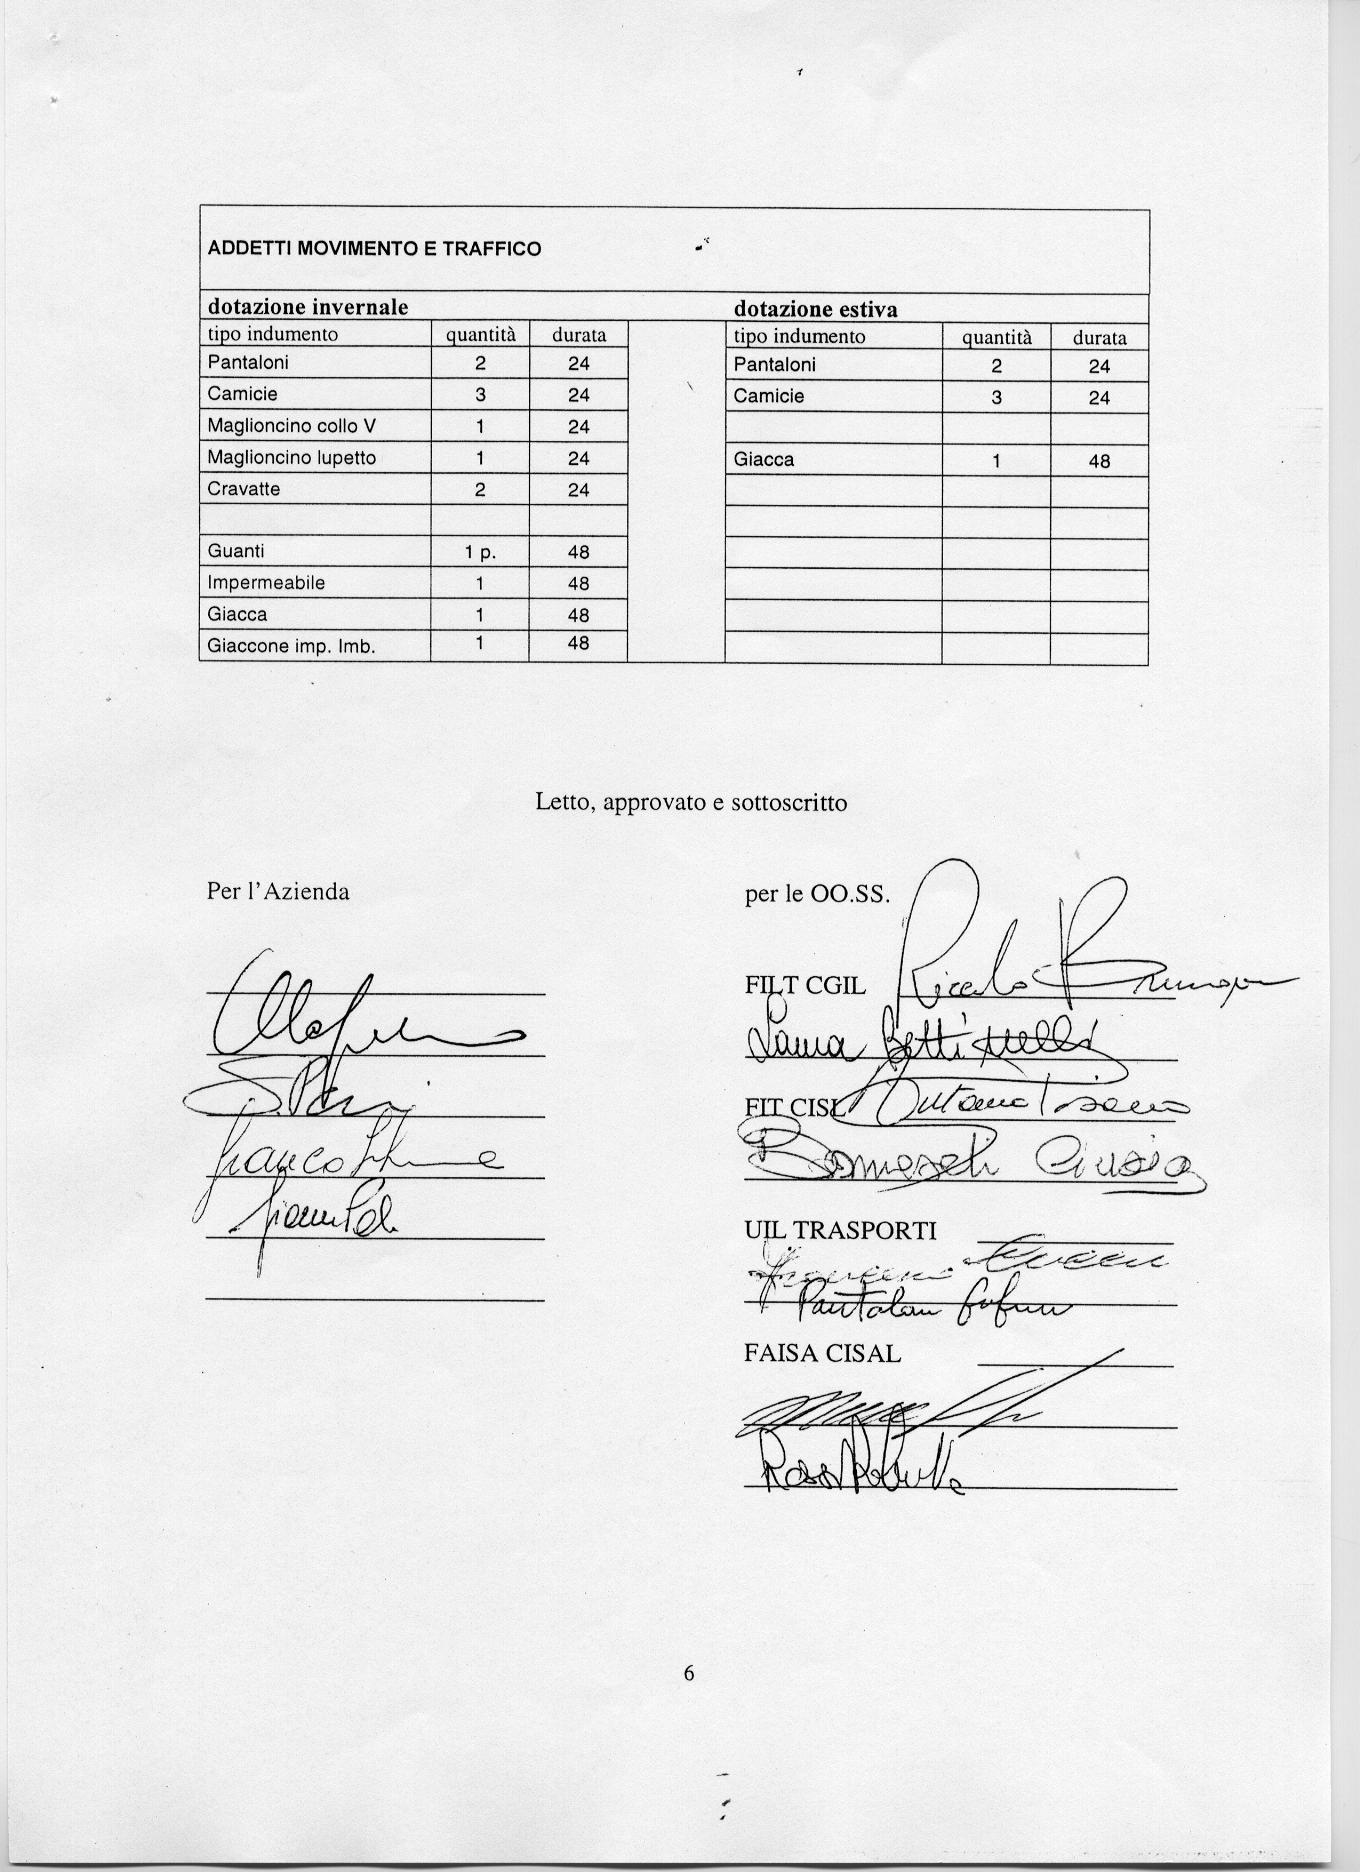 ADDETTI MOVIMENTO E TRAFFICO
dotazione invernale dotazione estiva
tipo indumento quantità durata tipo indumento quantità durata
Pantaloni 2 24 Pantaloni 2 24
Camicie 3 24 Camicie 3 24
Maglioncino collo V 1 24
Maglioncino lupetto 1 24 Giacca 1 48
Cravatte 2 24
Guanti 1 p. 48
Impermeabile 1 48
Giacca 1 48
Giaccone imp. Imb. 1 48
Letto, approvato e sottoscritto
Per l'Azienda per le OO.SS.
FILT CGIL Riccardo
Laura Bettinelli
FIT CISL Antonio Pisano
UIL TRASPORTI
Francesco
Pantaleo
FAISA CISAL
Rossi
6